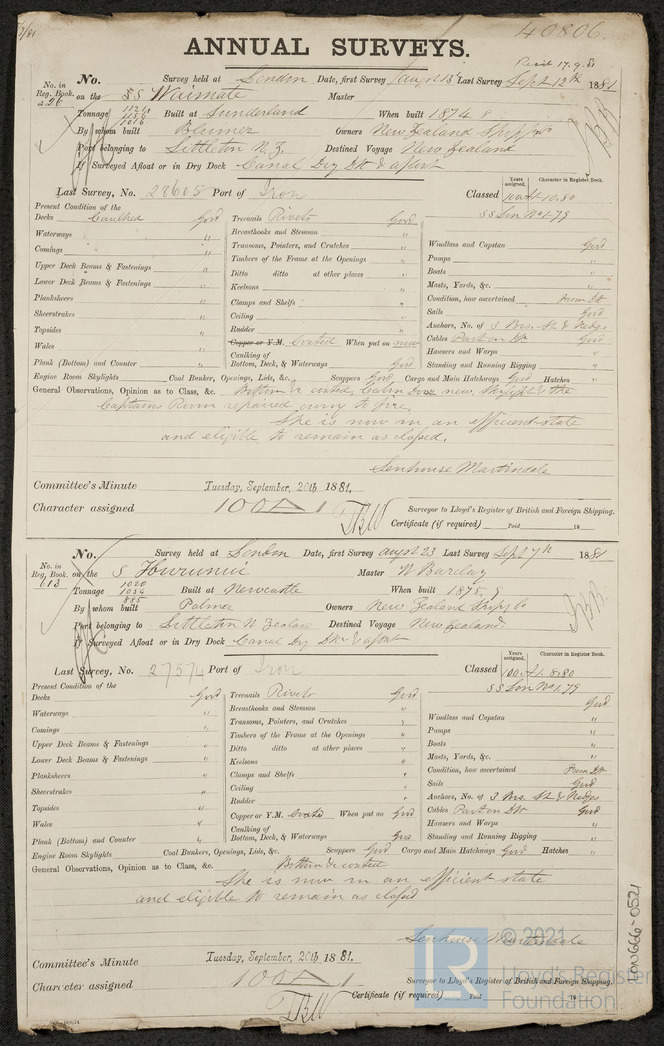 40806.
ANNUAL SURVEYS.
No. in Reg. Book. No. Survey held at London Date, first Survey Last Survey Sept 12th 1881
on the SS Waimate Master
Tonnage Built at Sunderland When built 1874. 8
By whom built Blumer Owners New Zealand Shipp
Port belonging to Littleton N. Z. Destined Voyage New Zealand
If Surveyed Afloat or in Dry Dock Canal Dry Dk & afloat
Last Survey, No. 28605 Port of Iron Classed Years assigned. Character in Register Book.
100A1 10.80
SS Lon No 1-79
Present Condition of the
Decks Caulked Good Treenails Rivets Good
Waterways " Breasthooks and Stemson "
Comings " Transoms, Pointers, and Crutches " Windlass and Capstan Good
Upper Deck Beams & Fastenings " Timbers of the Frame at the Openings " Pumps "
Lower Deck Beams & Fastenings " Ditto ditto at other places " Boats "
Planksheers " Keelsons " Masts, Yards, &c. "
Sheerstrakes " Clamps and Shelfs " Condition, how ascertained From Dk
Topsides " Ceiling " Sails Good
Wales " Rudder " Anchors, No. of 3 Brs. St & Kedge
Plank (Bottom) and Counter " Copper or Y.M. Coated When put on now Cables Part on Dk Good
Caulking of Bottom, Deck, & Waterways Good Hawsers and Warps "
Standing and Running Rigging "
Engine Room Skylights Coal Bunker, Openings, Lids, &c. Scuppers Good Cargo and Main Hatchways Good Hatches "
General Observations, Opinion as to Class, &c. Bottom & coated, Cabin Door new, Skylight & the
Captains Room repaired owing to fire.
She is now in an efficient state
and eligible to remain as classed.
Senhouse Martindale
Committee's Minute Tuesday, September, 20th 1881.
Character assigned 100A1 Surveyor to Lloyd's Register of British and Foreign Shipping.
Certificate (if required) Paid 18
No. in Reg. Book. 613 No. Survey held at London Date, first Survey augst 23 Last Survey Sept 7th 1881
on the S Hurunui Master W Barclay
Tonnage 1020 1054 885 Built at Newcastle When built 1875. 9
By whom built Palmer Owners New Zealand Shipg Co
Port belonging to Littleton N Zealand Destined Voyage New Zealand.
If Surveyed Afloat or in Dry Dock Canal Dry Dk & afloat
Last Survey, No. 27574 Port of Iron Classed Years assigned. Character in Register Book.
100A1 8.80
SS Lon No 1.79
Present Condition of the
Decks Good Treenails Rivets Good Good
Waterways " Breasthooks and Stemson " Windlass and Capstan "
Comings " Transoms, Pointers, and Crutches " Pumps "
Upper Deck Beams & Fastenings " Timbers of the Frame at the Openings " Boats "
Lower Deck Beams & Fastenings " Ditto ditto at other places " Masts, Yards, &c. "
Planksheers " Keelsons " Condition, how ascertained From Dk
Sheerstrakes " Clamps and Shelfs " Sails Good
Topsides " Ceiling " Anchors, No. of 3 Brs. St & Kedge
Wales " Rudder " Cables Part on Dk Good
Plank (Bottom) and Counter " Copper or Y.M. Coated When put on Good Hawsers and Warps "
Caulking of Bottom, Deck, & Waterways Good Standing and Running Rigging "
Engine Room Skylights Coal Bunkers, Openings, Lids, &c. Scuppers Good Cargo and Main Hatchways Good Hatches "
General Observations, Opinion as to Class, &c. Bottom & coated
She is now in an efficient state
and eligible to remain as classed
Senhouse Martindale
Committee's Minute Tuesday, September, 20th 1881.
Character assigned 100A1 Surveyor to Lloyd's Register of British and Foreign Shipping.
Certificate (if required) Paid 18
LON666-0521
LR
© 2021
Lloyd's Register
Foundation